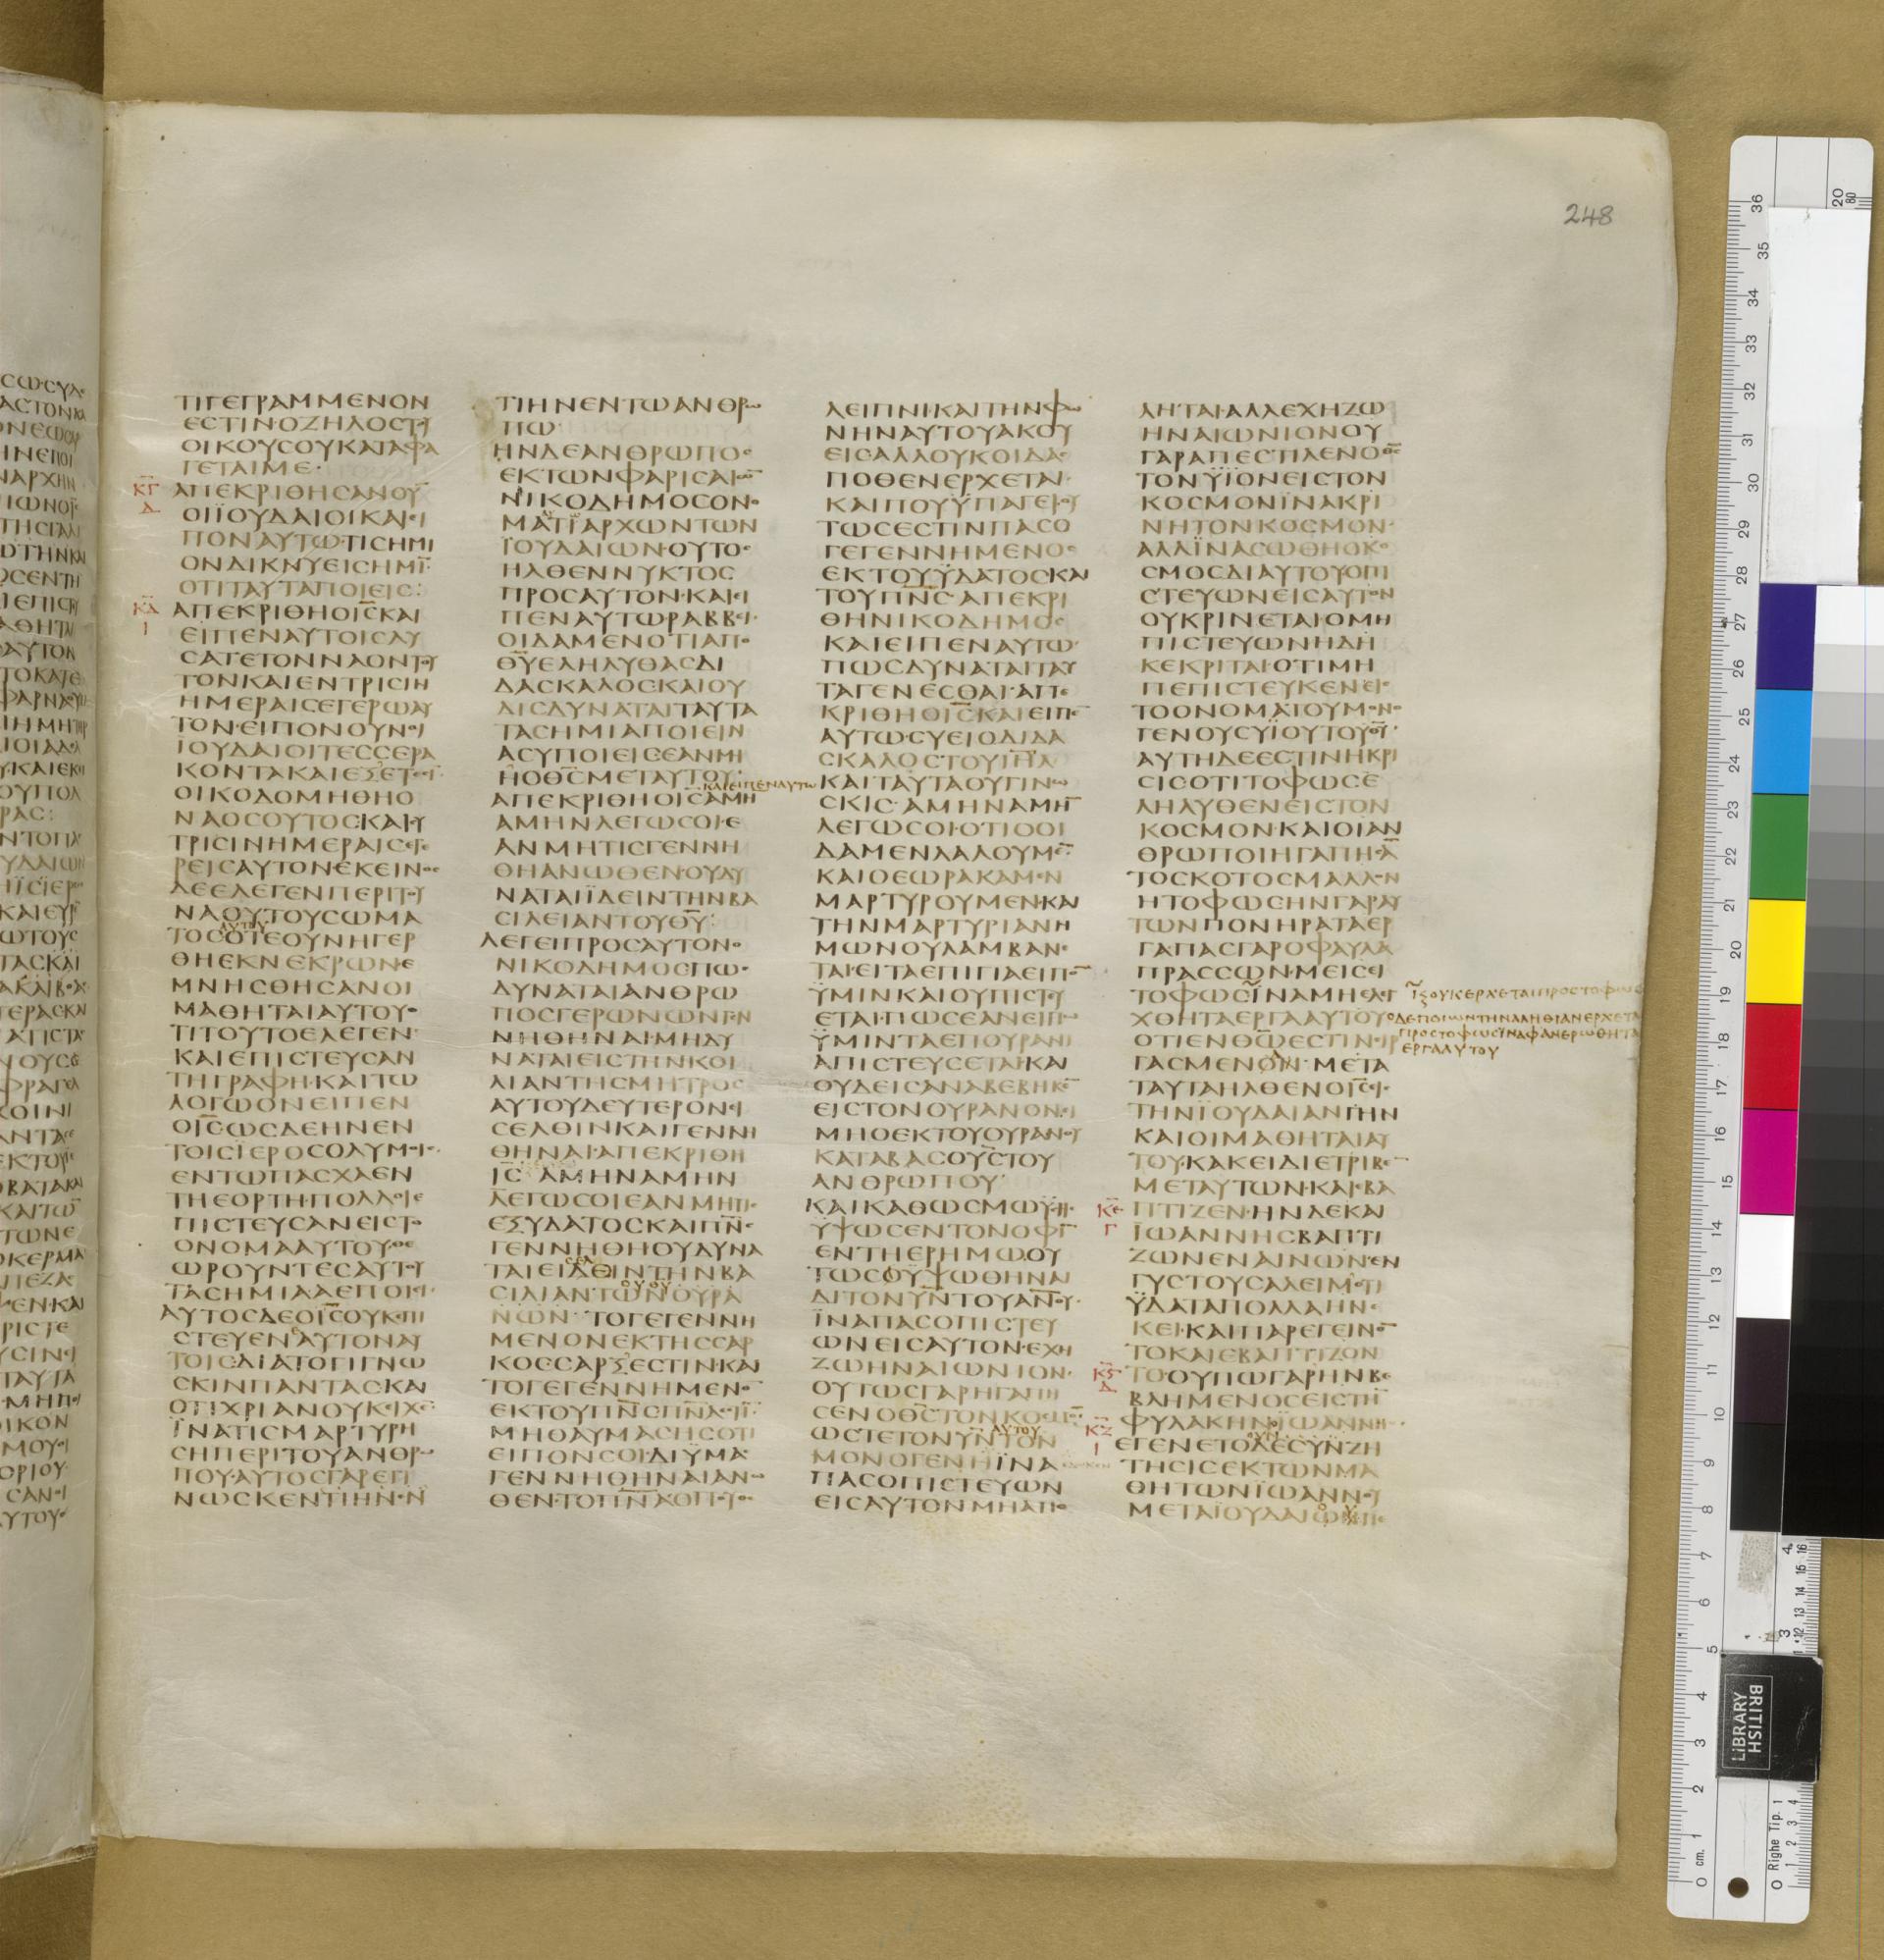 248
ΤΙΓΕΓΡΑΜΜΕΝΟΝ
ΕϹΤΙΝ·ΟΖΗΛΟϹΤΟΥ
ΟΙΚΟΥϹΟΥΚΑΤΑΦΑ
ΓΕΤΑΙΜΕ·
ΚΓ ΑΠΕΚΡΙΘΗϹΑΝΟΥ̅
Δ ΟΙΪΟΥΔΑΙΟΙΚΑΙΕΙ
ΠΟΝΑΥΤΩ·ΤΙϹΗΜΙ
ΟΝΔΙΚΝΥΕΙϹΗΜΙ̅
ΟΤΙΤΑΥΤΑΠΟΙΕΙϹ:
ΚΔ ΑΠΕΚΡΙΘΗΟΙ̅Ϲ̅ΚΑΙ
Ι ΕΙΠΕΝΑΥΤΟΙϹΛΥ
ϹΑΤΕΤΟΝΝΑΟΝΤΟΥ
ΤΟΝΚΑΙΕΝΤΡΙϹΙΗ
ΗΜΕΡΑΙϹΕΓΕΡΩΑΥ
ΤΟΝ·ΕΙΠΟΝΟΥΝΟΙ
ΪΟΥΔΑΙΟΙΤΕϹϹΕΡΑ
ΚΟΝΤΑΚΑΙΕΞΕΤΕϹΙ̅
ΟΙΚΟΔΟΜΗΘΗΟ
ΝΑΟϹΟΥΤΟϹΚΑΙϹΥ
ΤΡΙϹΙΝΗΜΕΡΑΙϹΕΓΕ
ΡΕΙϹΑΥΤΟΝΕΚΕΙΝΟϹ
ΔΕΕΛΕΓΕΝΠΕΡΙΤΟΥ
ΝΑΟΥΤΟΥϹΩΜΑ
ΑΥΤΟΥ
ΤΟϹΟΤΕΟΥΝΗΓΕΡ
ΘΗΕΚΝΕΚΡΩΝΕ
ΜΝΗϹΘΗϹΑΝΟΙ
ΜΑΘΗΤΑΙΑΥΤΟΥΟ
ΤΙΤΟΥΤΟΕΛΕΓΕΝ
ΚΑΙΕΠΙϹΤΕΥϹΑΝ
ΤΗΓΡΑΦΗ·ΚΑΙΤΩ
ΛΟΓΩΟΝΕΙΠΕΝ
ΟΙ̅Ϲ̅ΩϹΔΕΗΝΕΝ
ΤΟΙϹΪΕΡΟϹΟΛΥΜΟΙϹ
ΕΝΤΩΠΑϹΧΑΕΝ
ΤΗΕΟΡΤΗ·ΠΟΛΛΟΙΕ
ΠΙϹΤΕΥϹΑΝΕΙϹΤΟ
ΟΝΟΜΑΑΥΤΟΥΘΕ
ΩΡΟΥΝΤΕϹΑΥΤΟΥ
ΤΑϹΗΜΙΑΑΕΠΟΙΕΙ·
ΑΥΤΟϹΔΕΟΙ̅Ϲ̅ΟΥΚΕΠΙ
ϹΤΕΥΕΝΑΥΤΟΝΑΥ
ΤΟΙϹΔΙΑΤΟΓΙΓΝΩ
ϹΚΙΝΠΑΝΤΑϹΚΑΙ
ΟΤΙΧΡΙΑΝΟΥΚΕΙΧΕ̅
ΪΝΑΤΙϹΜΑΡΤΥΡΗ
ϹΗΠΕΡΙΤΟΥΑΝΘΡΩ
ΠΟΥ·ΑΥΤΟϹΓΑΡΕΓΙ
ΝΩϹΚΕΝΤΙΗΝΕΝ
ΤΙΗΝΕΝΤΩΑΝΘΡΩ
ΠΩ
ΗΝΔΕΑΝΘΡΩΠΟϹ
ΕΚΤΩΝΦΑΡΙϹΑΙΩ̅
ΝΙΚΟΔΗΜΟϹΟΝΟ
ΜΑΤΙΑΡΧΩΝΤΩΝ
ΪΟΥΔΑΙΩΝ·ΟΥΤΟϹ
ΗΛΘΕΝΝΥΚΤΟϹ
ΠΡΟϹΑΥΤΟΝ·ΚΑΙΕΙ
ΠΕΝΑΥΤΩΡΑΒΒΕΙ·
ΟΙΔΑΜΕΝΟΤΙΑΠΟ
Θ̅Υ̅ΕΛΗΛΥΘΑϹΔΙ
ΔΑϹΚΑΛΟϹ·ΚΑΙΟΥ
ΔΙϹΔΥΝΑΤΑΙΤΑΥΤΑ
ΤΑϹΗΜΙΑΠΟΙΕΙΝ
ΑϹΥΠΟΙΕΙϹΕΑΝΜΗ
ΗΟΘ̅Ϲ̅ΜΕΤΑΥΤΟΥ:
ΚΑΙΕΙΠΕΝΑΥΤΩ
ΑΠΕΚΡΙΘΗΟΙ̅Ϲ̅ΑΜΗ
ΑΜΗΝΛΕΓΩϹΟΙ·Ε
ΑΝΜΗΤΙϹΓΕΝΝΗ
ΘΗΑΝΩΘΕΝ·ΟΥΔΥ
ΝΑΤΑΙΪΔΕΙΝΤΗΝΒΑ
ϹΙΛΕΙΑΝΤΟΥΘ̅Υ̅:
ΛΕΓΕΙΠΡΟϹΑΥΤΟΝΟ
ΝΙΚΟΔΗΜΟϹΠΩϹ
ΔΥΝΑΤΑΙΑΝΘΡΩ
ΠΟϹΓΕΡΩΝΩΝΓΕΝ
ΝΗΘΗΝΑΙ·ΜΗΔΥ
ΝΑΤΑΙΕΙϹΤΗΝΚΟΙ
ΛΙΑΝΤΗϹΜΗΤΡΟϹ
ΑΥΤΟΥΔΕΥΤΕΡΟΝΕΙ
ϹΕΛΘΙΝΚΑΙΓΕΝΝΗ
ΘΗΝΑΙ·ΑΠΕΚΡΙΘΗ
Ι̅Ϲ̅ ΑΜΗΝΑΜΗΝ
ΛΕΓΩϹΟΙΕΑΝΜΗΤΙϹ
ΕΞΥΔΑΤΟϹΚΑΙΠ̅Ν̅Ϲ̅
ΓΕΝΝΗΘΗΟΥΔΥΝΑ
ΤΑΙΕΙΔΕΙΝΤΗΝΒΑ
ϹΙΛΙΑΝΤΩΝΟΥΡΑ
ΝΩΝ ΤΟΓΕΓΕΝΝΗ
ΜΕΝΟΝΕΚΤΗϹϹΑΡ
ΚΟϹϹΑΡΞΕϹΤΙΝ·ΚΑΙ
ΤΟΓΕΓΕΝΝΗΜΕΝΟ̅
ΕΚΤΟΥΠ̅Ν̅Ϲ̅Π̅Ν̅Α̅ΕϹΤΙ̅
ΜΗΘΑΥΜΑϹΗϹΟΤΙ
ΕΙΠΟΝϹΟΙ·ΔΙΫΜΑϹ
ΓΕΝΝΗΘΗΝΑΙΑΝΩ
ΘΕΝ·ΤΟΠ̅Ν̅Α̅ΟΠΟΥΘΕ
ΛΕΙΠΝΙ·ΚΑΙΤΗΝΦΩ
ΝΗΝΑΥΤΟΥΑΚΟΥ
ΕΙϹΑΛΛΟΥΚΟΙΔΑϹ
ΠΟΘΕΝΕΡΧΕΤΑΙ·
ΚΑΙΠΟΥΫΠΑΓΕΙΟΥ
ΤΩϹΕϹΤΙΝΠΑϹΟ
ΓΕΓΕΝΝΗΜΕΝΟϹ
ΕΚΤΟΥΫΔΑΤΟϹΚΑΙ
ΤΟΥΠ̅Ν̅Ϲ̅·ΑΠΕΚΡΙ
ΘΗΝΙΚΟΔΗΜΟϹ
ΚΑΙΕΙΠΕΝΑΥΤΩ·
ΠΩϹΔΥΝΑΤΑΙΤΑΥ
ΤΑΓΕΝΕϹΘΑΙ·ΑΠΕ
ΚΡΙΘΗΟΙ̅Ϲ̅ΚΑΙΕΙΠΕ̅
ΑΥΤΩ·ϹΥΕΙΟΔΙΔΑ
ϹΚΑΛΟϹΤΟΥΙ̅Η̅Λ̅
ΚΑΙΤΑΥΤΑΟΥΓΙΝΩ
ϹΚΙϹ·ΑΜΗΝΑΜΗ̅
ΛΕΓΩϹΟΙ·ΟΤΙΟΟΙ
ΔΑΜΕΝΛΑΛΟΥΜΕ̅
ΚΑΙΟΕΩΡΑΚΑΜΕΝ
ΜΑΡΤΥΡΟΥΜΕΝ·ΚΑΙ
ΤΗΝΜΑΡΤΥΡΙΑΝΗ
ΜΩΝΟΥΛΑΜΒΑΝΕ
ΤΑΙ·ΕΙΤΑΕΠΙΓΙΑΕΙΠΟ̅
ΫΜΙΝΚΑΙΟΥΠΙϹΤΕΥ
ΕΤΑΙ·ΠΩϹΕΑΝΕΙΠΩ
ΫΜΙΝΤΑΕΠΟΥΡΑΝΙ
ΑΠΙϹΤΕΥϹΕΤΑΙ·ΚΑΙ
ΟΥΔΕΙϹΑΝΑΒΕΒΗΚΕ̅
ΕΙϹΤΟΝΟΥΡΑΝΟΝΕΙ
ΜΗΟΕΚΤΟΥΟΥΡΑΝΟΥ
ΚΑΤΑΒΑϹΟΥ̅Ϲ̅ΤΟΥ
ΑΝΘΡΩΠΟΥ·
ΚΑΙΚΑΘΩϹΜΩΫϹΗϹ
ΥΨΩϹΕΝΤΟΝΟΦΙ̅
ΕΝΤΗΕΡΗΜΩ·ΟΥ
ΤΩϹΟΥΨΩΘΗΝΑΙ
ΔΙΤΟΝΥ̅Ν̅ΤΟΥΑ̅Ν̅ΟΥ·
ΪΝΑΠΑϹΟΠΙϹΤΕΥ
ΩΝΕΙϹΑΥΤΟΝ·ΕΧΗ
ΖΩΗΝΑΙΩΝΙΟΝ·
ΟΥΤΩϹΓΑΡΗΓΑΠΗ
ϹΕΝΟΘ̅Ϲ̅ΤΟΝΚΟϹΜΟ̅
ΑΥΤΟΥ
ΩϹΤΕΤΟΝΥ̅Ν̅ΤΟΝ
ΜΟΝΟΓΕΝΗΪΝΑ
ΠΑϹΟΠΙϹΤΕΥΩΝ
ΕΙϹΑΥΤΟΝΜΗΑΠΟ
ΛΗΤΑΙ·ΑΛΛΕΧΗΖΩ
ΗΝΑΙΩΝΙΟΝΟΥ
ΓΑΡΑΠΕϹΤΙΛΕΝΟΘ̅Ϲ̅
ΤΟΝΫΪΟΝΕΙϹΤΟΝ
ΚΟϹΜΟΝΪΝΑΚΡΙ
ΝΗΤΟΝΚΟϹΜΟΝ·
ΑΛΛΪΝΑϹΩΘΗΟΚΟ
ϹΜΟϹΔΙΑΥΤΟΥΟΠΙ
ϹΤΕΥΩΝΕΙϹΑΥΤΟΝ
ΟΥΚΡΙΝΕΤΑΙΟΜΗ
ΠΙϹΤΕΥΩΝΗΔΗ
ΚΕΚΡΙΤΑΙ·ΟΤΙΜΗ
ΠΕΠΙϹΤΕΥΚΕΝΕΙϹ
ΤΟΟΝΟΜΑΤΟΥΜΟΝΟ
ΓΕΝΟΥϹΥΪΟΥΤΟΥΘ̅Υ̅·
ΑΥΤΗΔΕΕϹΤΙΝΗΚΡΙ
ϹΙϹΟΤΙΤΟΦΩϹΕ
ΛΗΛΥΘΕΝΕΙϹΤΟΝ
ΚΟϹΜΟΝ·ΚΑΙΟΙΑΝ
ΘΡΩΠΟΙΗΓΑΠΗϹΑ̅
ΤΟϹΚΟΤΟϹΜΑΛΛΟΝ
ΗΤΟΦΩϹΗΝΓΑΡΑΥ
ΤΩΝΠΟΝΗΡΑΤΑΕΡ
ΓΑΠΑϹΓΑΡΟΦΑΥΛΑ
ΠΡΑϹϹΩΝ·ΜΕΙϹΕΙ
ΤΟΦΩϹΪΝΑΜΗΕΛΕΓ
ΧΘΗΤΑΕΡΓΑΑΥΤΟΥ
ΚΟΥΚΕΡΧΕΤΑΙΠΡΟϹΤΟΦΩϹ
ΟΔΕΠΟΙΩΝΤΗΝΑΛΗΘΙΑΝΕΡΧΕΤΑΙ
ΠΡΟϹΤΟΦΩϹΪΝΑΦΑΝΕΡΩΘΗΤΑ
ΕΡΓΑΑΥΤΟΥ
ΟΤΙΕΝΘ̅Ω̅ΕϹΤΙΝΕΙΡ
ΓΑϹΜΕΝΟΝ· ΜΕΤΑ
ΤΑΥΤΑΗΛΘΕΝΟΙ̅Ϲ̅ΕΙϹ
ΤΗΝΪΟΥΔΑΙΑΝΓΗΝ
ΚΑΙΟΙΜΑΘΗΤΑΙΑΥ
ΤΟΥ·ΚΑΚΕΙΔΙΕΤΡΙΒΕ̅
ΜΕΤΑΥΤΩΝ·ΚΑΙΕΒΑ
ΚΕ ΠΤΙΖΕΝ·ΗΝΔΕΚΑΙ
Γ ΪΩΑΝΝΗϹΒΑΠΤΙ
ΖΩΝΕΝΑΙΝΩΝΕΝ
ΓΥϹΤΟΥϹΑΛΕΙΜΟΤΙ
ΫΔΑΤΑΠΟΛΛΑΗΝΕ
ΚΕΙ·ΚΑΙΠΑΡΕΓΕΙΝΟ̅
ΤΟΚΑΙΕΒΑΠΤΙΖΟΝ
ΚϚ ΤΟ·ΟΥΠΩΓΑΡΗΝΒΕ
Δ ΒΛΗΜΕΝΟϹΕΙϹΤΗ̅
ΦΥΛΑΚΗΝΪΩΑΝΝΗϹ·
ΚΖ ΕΓΕΝΕΤΟΔΕϹΥΝΖΗ
Ι ΤΗϹΙϹΕΚΤΩΝΜΑ
ΘΗΤΩΝΪΩΑΝΝΟΥ
ΜΕΤΑΪΟΥΔΑΙΩΝΠΕ
BRITISH
LIBRARY
0 cm. 1
0 Righe Tip. 1